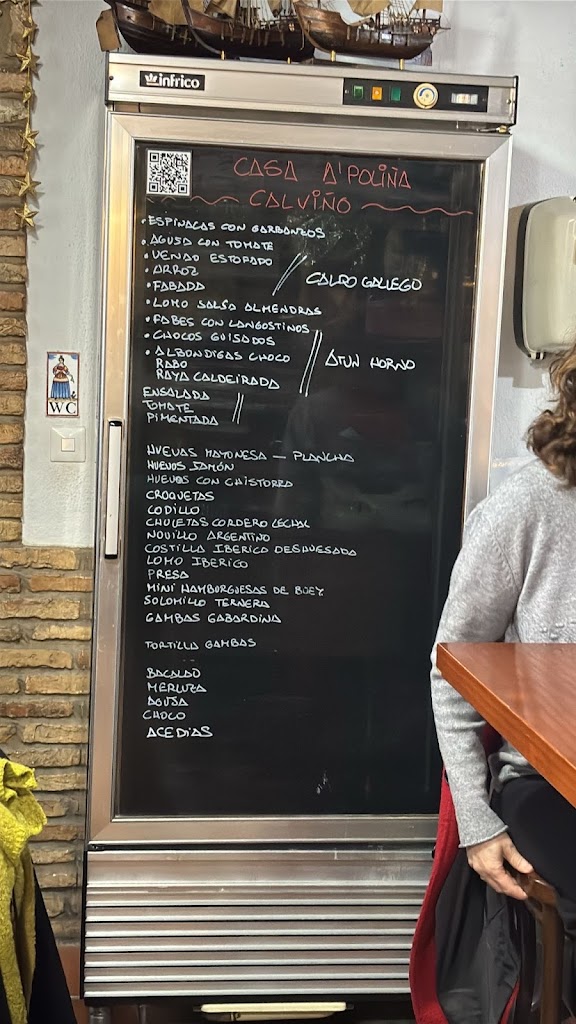 infrico
CASA A'POLIÑA
CALVIÑO
• ESPINACAS CON GARBANZOS
• AGUJA CON TOMATE
• VENAO ESTOFADO
• ARROZ
CALDO GALLEGO
• FABADA
• LOMO SALSA ALMENDRAS
• FABES CON LANGOSTINOS
• CHOCOS GUISADOS
• ALBONDIGAS CHOCO
ATUN HORNO
RABO
RAYA CALDEIRADA
ENSALADA
TOMATE
PIMENTADA
WC
HUEVAS MAYONESA — PLANCHA
HUEVOS JAMÓN
HUEVOS CON CHISTORRA
CROQUETAS
CODILLO
CHULETAS CORDERO LECHAL
NOVILLO ARGENTINO
COSTILLA IBERICO DESHUESADA
LOMO IBERICO
PRESA
MINI HAMBORGUESAS DE BUEY
SOLOMILLO TERNERA
GAMBAS GABARDINA
TORTILLA GAMBAS
BACALAO
MERLUZA
AGUJA
CHOCO
ACEDIAS